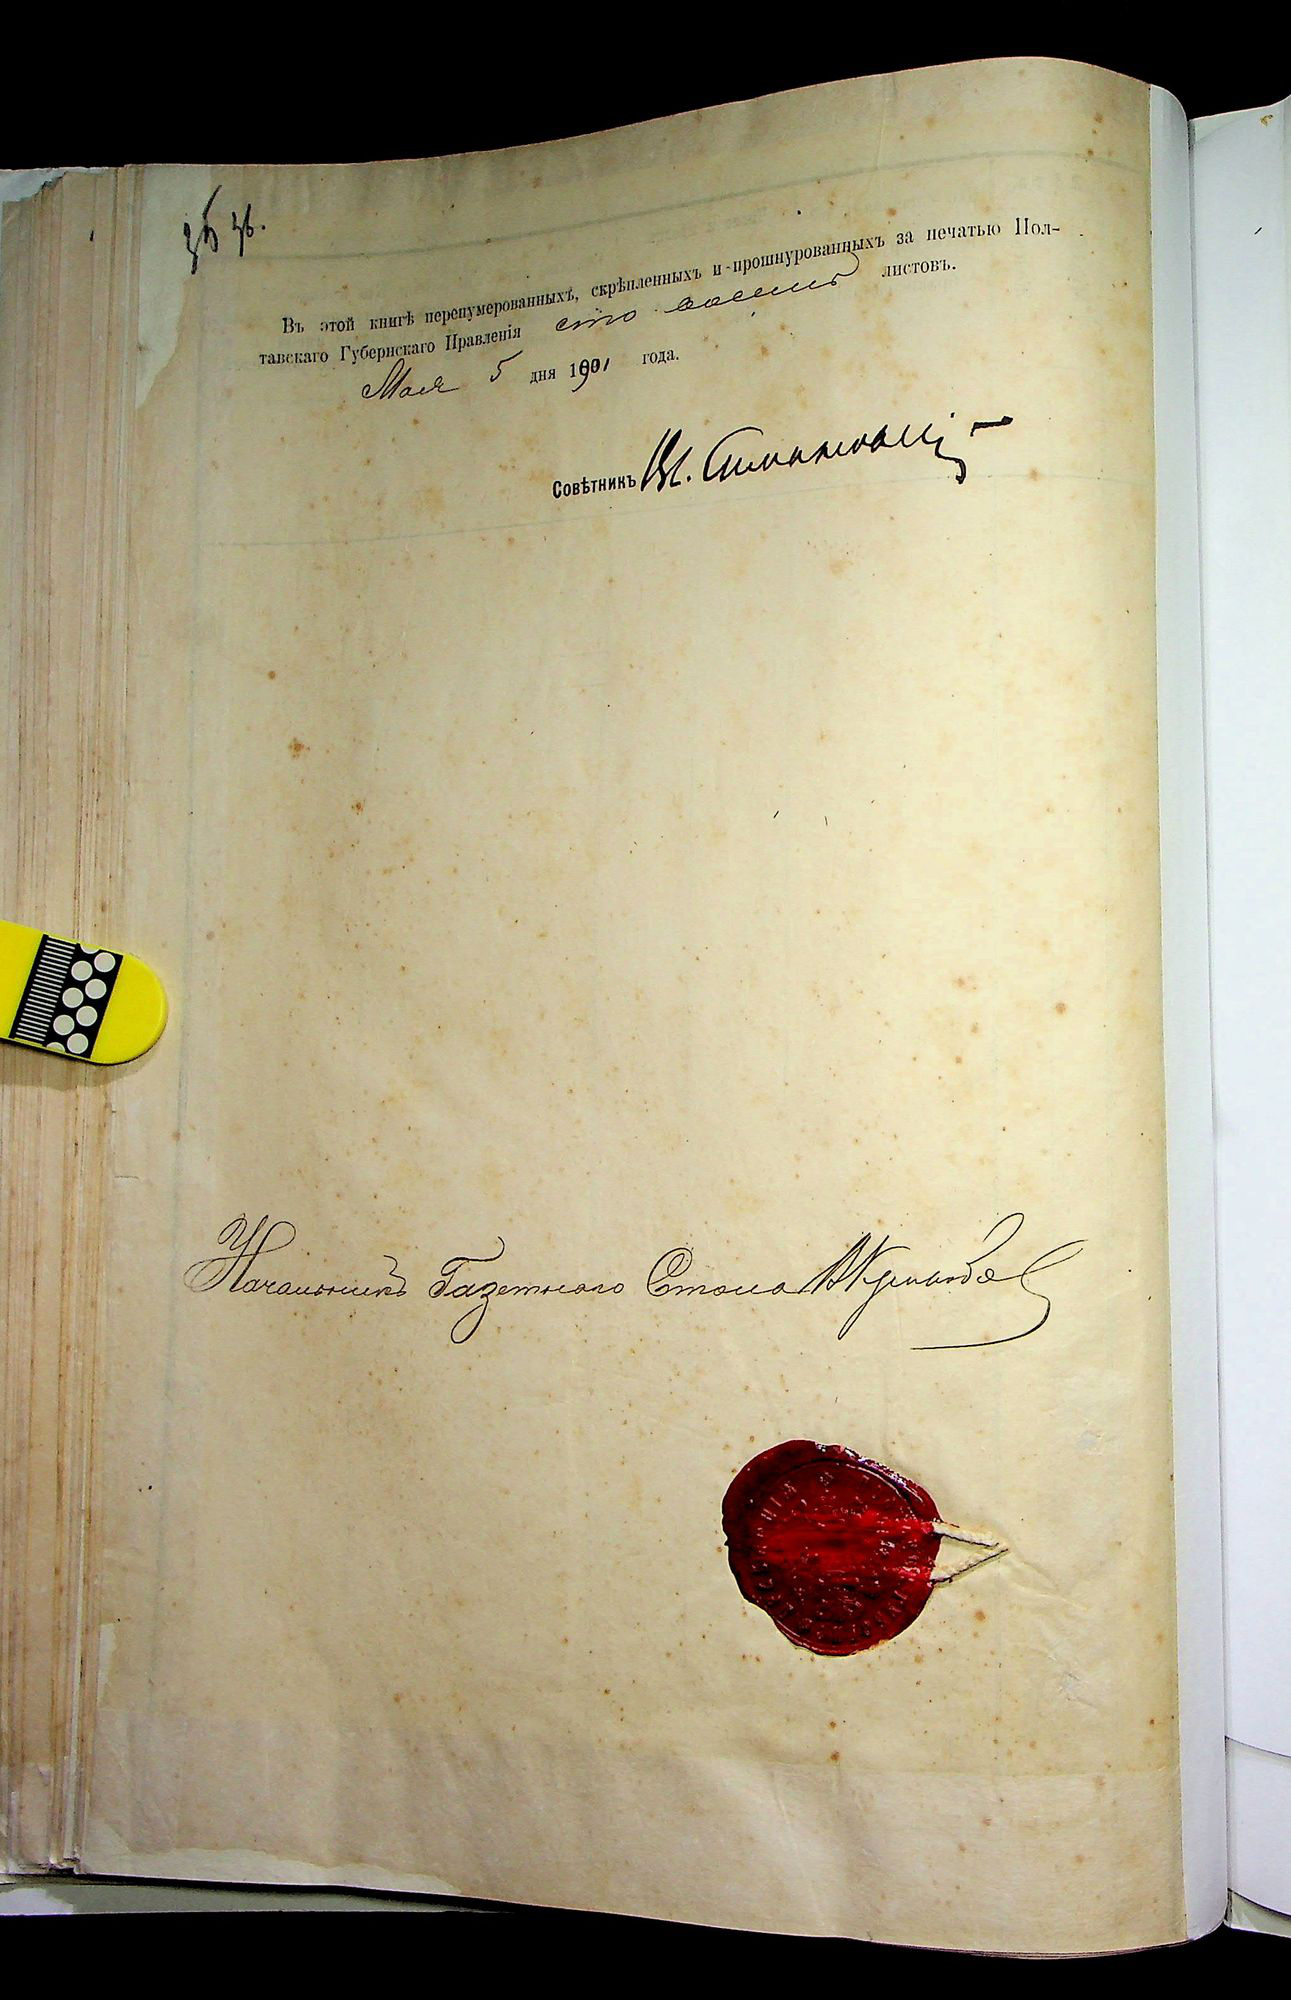 Въ этой книгѣ перенумерованныхъ, скрѣпленныхъ и прошнурованныхъ за печатью Пол-
тавскаго Губернскаго Правленія сто восемь листовъ.
Мая 5 дня 1901 года.
Совѣтникъ
Начальникъ Газетнаго Стола